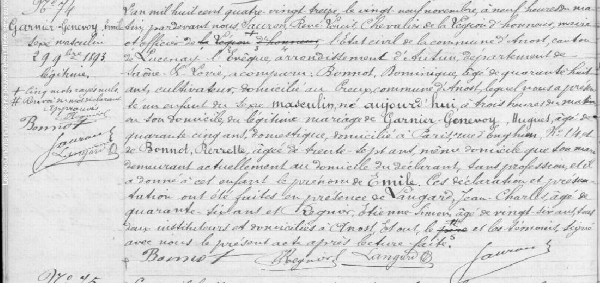 N° 74
Garnier-Genevoy Emile
sexe masculin
29 9bre 1893
légitime
+ cinq mots rayés nuls
Bonnot
Sauron
Langard
L'an mil huit cent quatre vingt treize, le vingt neuf novembre, à neuf heures du ma-
tin, par devant nous, Sauron René Louis Chevalier de la Légion d'honneur, maire
et officier de la Légion d'honneur + l'Etat civil de la commune d'Anost, canton
de Lucenay l'Evêque, arrondissement d'Autun, département de
Saône & Loire, a comparu, Bonnot, Dominique, âgé de quarante huit
ans, cultivateur, domicilié au Creux, commune d'Anost, lequel nous a présen-
té un enfant du sexe masculin, né aujourd'hui, à trois heures du matin
en son domicile, du légitime mariage de Garnier-Genevoy, Huguet, âgé de
quarante cinq ans, domestique, domicilié à Paris, rue d'Enghien N° 14, et
de Bonnot, Pierrette, âgée de trente sept ans, même domicile que son mari
demeurant actuellement au domicile du déclarant, sans profession, et il
a donné à cet enfant le prénom de Emile. Ces déclaration et présen-
tation ont été faites en présence de Langard, Jean Charles, âgé de
quarante six ans et Regnier, Etienne Simon, âgé de vingt six ans, tous
deux instituteurs et domiciliés à Anost, et ont, le et les témoins, signé
avec nous le présent acte après lecture faite.
Bonnot Regnier Langard Sauron
N° 75